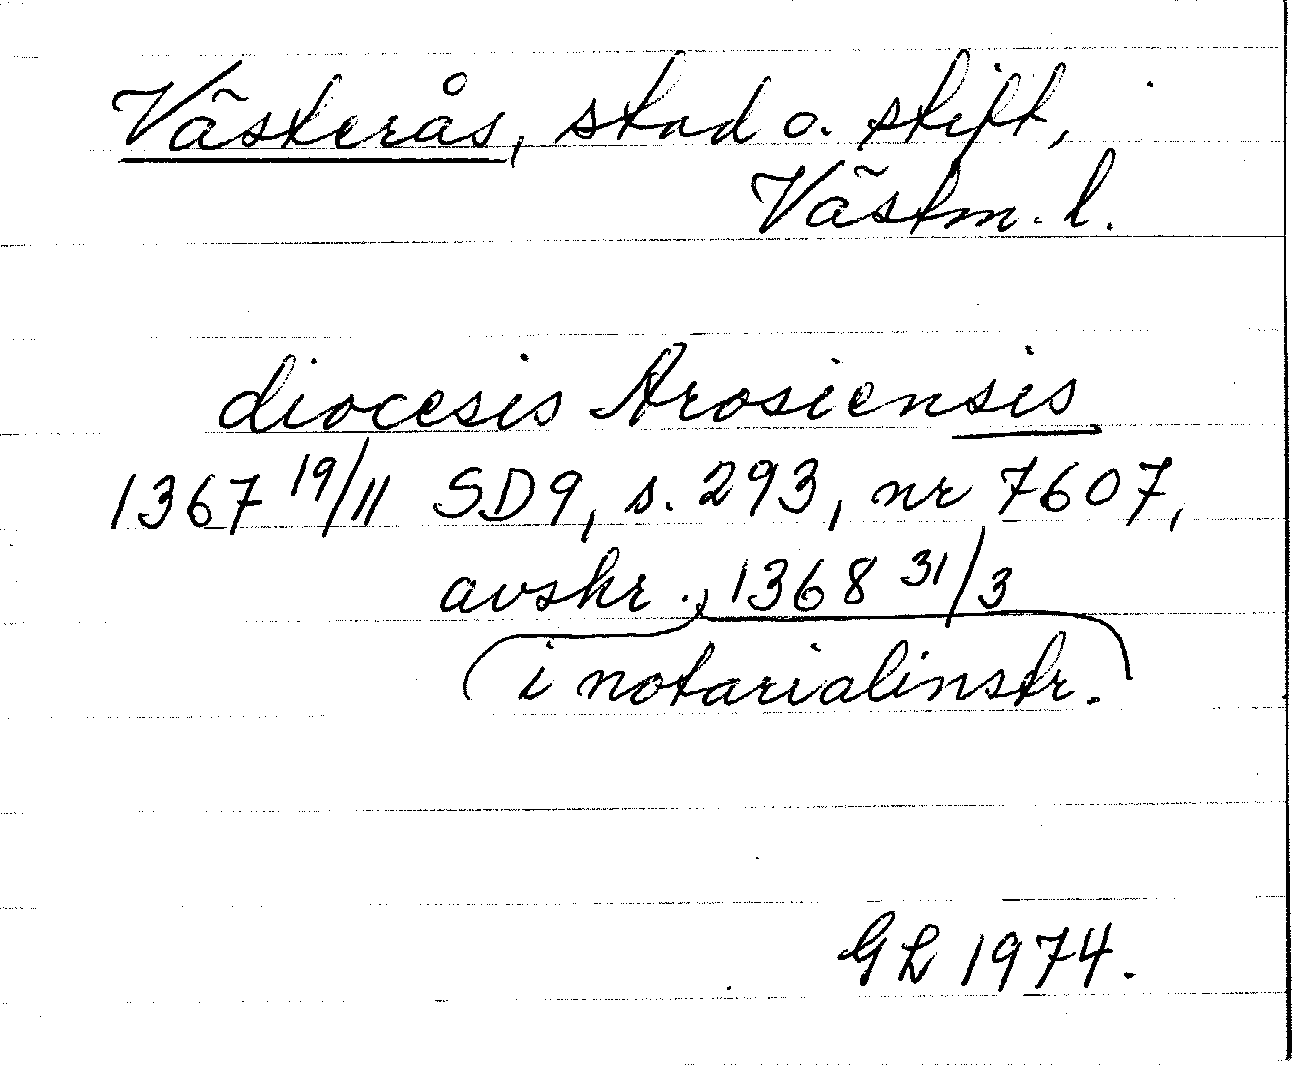 Västerås, stad o. stift,
Västm. l.
diocesis Arosiensis
1367 19/11 SD9, s. 293, nr 7607,
avskr. 1368 31/3
i notarialinstr.
GL 1974.